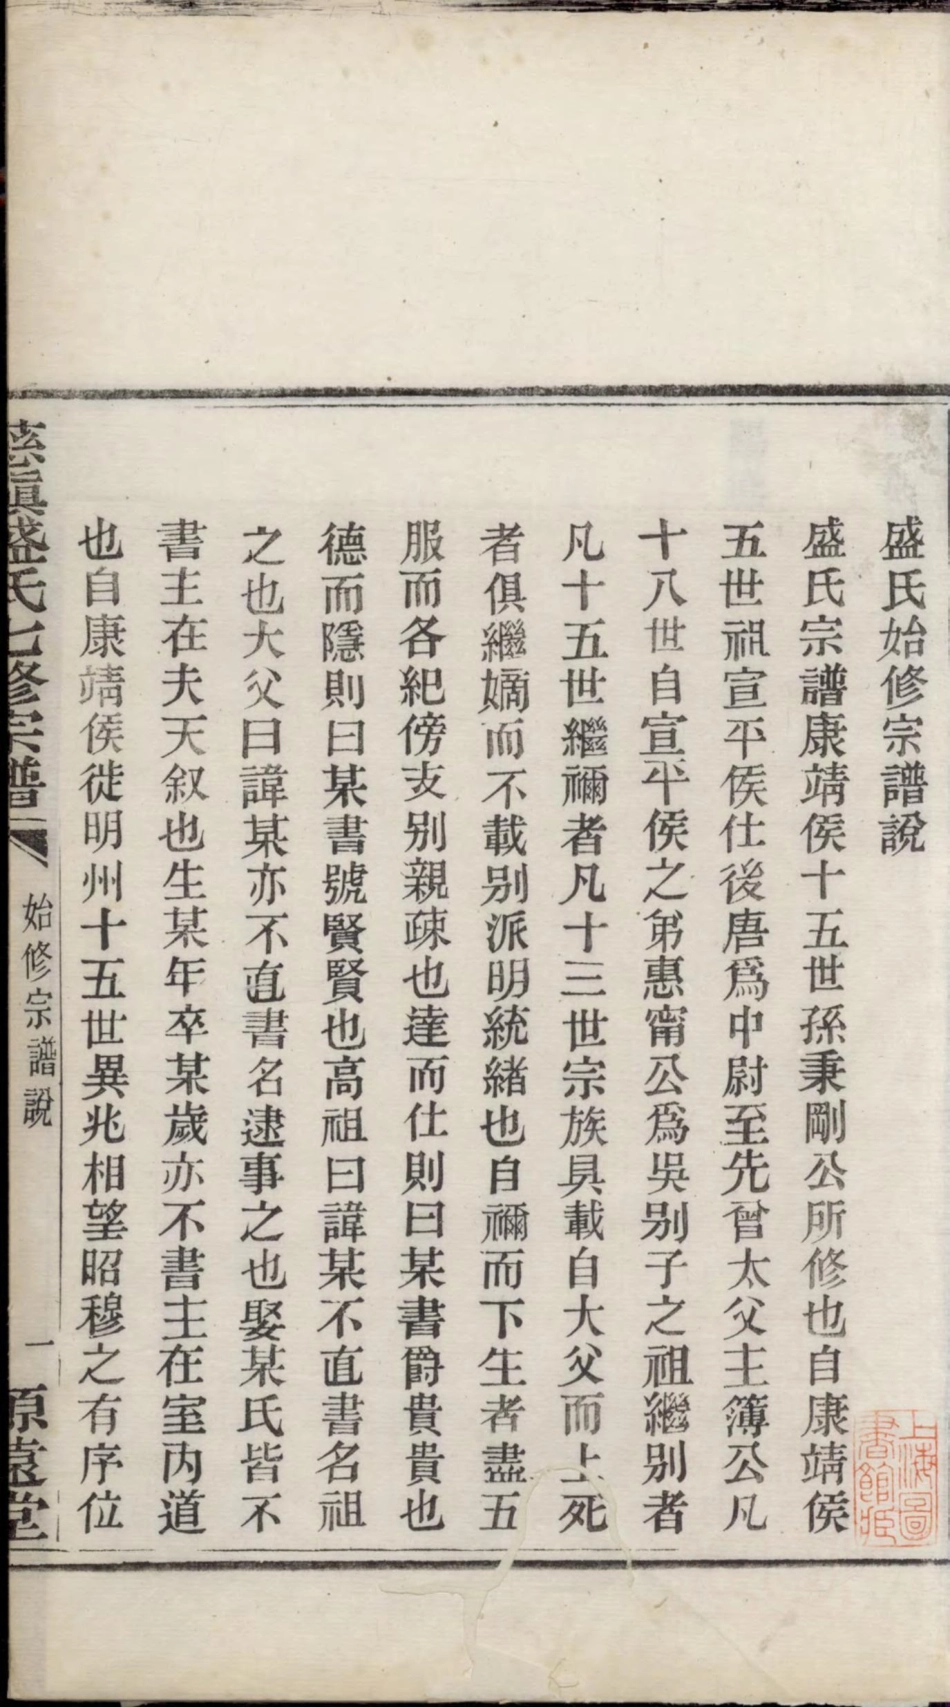 盛氏始修宗譜說
盛氏宗譜康靖侯十五世孫秉剛公所修也自康靖侯
五世祖宣平侯仕後唐爲中尉至先曾太父主簿公凡
十八世自宣平侯之弟惠甯公爲吳别子之祖繼别者
凡十五世繼禰者凡十三世宗族具載自大父而上死
者俱繼嫡而不載别派明統緒也自禰而下生者盡五
服而各紀傍支别親疎也達而仕則曰某書爵貴貴也
德而隱則曰某書號賢賢也高祖曰諱某不直書名祖
之也大父曰諱某亦不直書名逮事之也娶某氏皆不
書主在夫天叙也生某年卒某歲亦不書主在室内道
也自康靖侯徙明州十五世異兆相望昭穆之有序位
慈鎭盛氏七修宗譜
始修宗譜說
一
源遠堂
上海圖書館藏